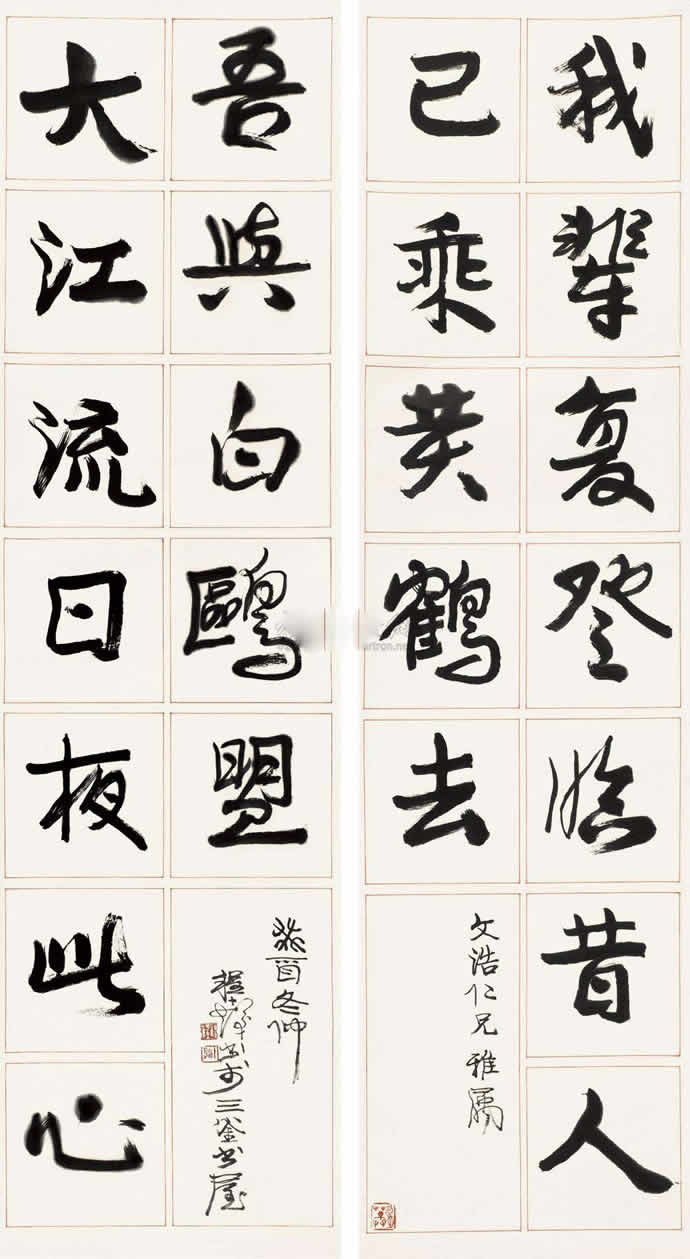 我輩复登臨昔人
已乘黄鶴去
文浩仁兄雅屬
大江流日夜此心
吾與白鷗盟
癸酉冬仲
程十髮书於三釜书屋